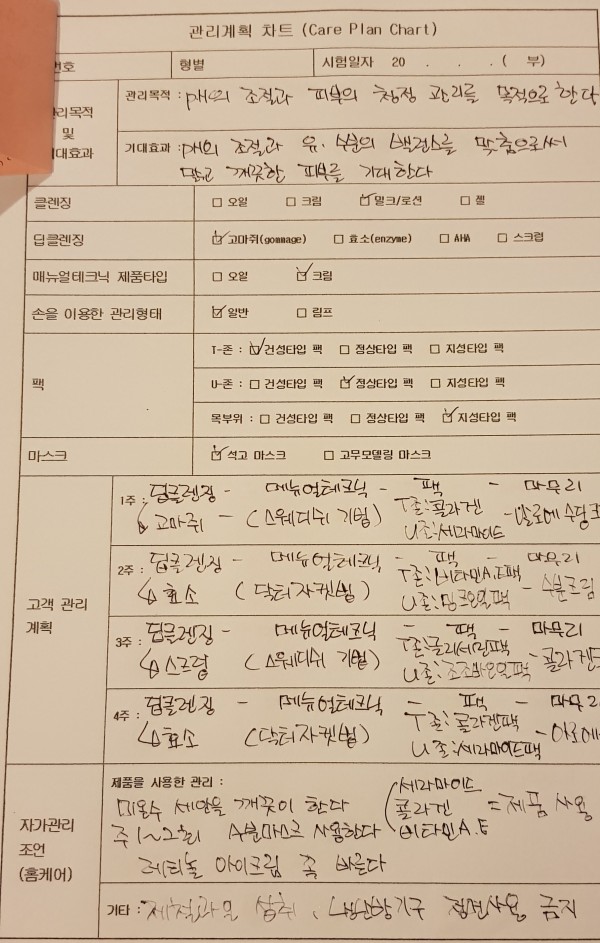 관리계획 차트 (Care Plan Chart)
번호 형별 시험일자 20 . . . ( 부)
관리목적 및 기대효과
관리목적 : pH의 조절과 피부의 청정 관리를 목적으로 한다
기대효과 : pH의 조절과 유.수분의 밸런스를 맞춤으로써
맑고 깨끗한 피부를 기대한다
클렌징 □ 오일 □ 크림 ☑ 밀크/로션 □ 젤
딥클렌징 ☑ 고마쥐(gommage) □ 효소(enzyme) □ AHA □ 스크럽
매뉴얼테크닉 제품타입 □ 오일 ☑ 크림
손을 이용한 관리형태 ☑ 일반 □ 림프
팩
T-존 : ☑ 건성타입 팩 □ 정상타입 팩 □ 지성타입 팩
U-존 : □ 건성타입 팩 ☑ 정상타입 팩 □ 지성타입 팩
목부위 : □ 건성타입 팩 □ 정상타입 팩 ☑ 지성타입 팩
마스크 ☑ 석고 마스크 □ 고무모델링 마스크
고객 관리 계획
1주 : 딥클렌징 - 메뉴얼테크닉 - 팩 - 마무리
↳ 고마쥐 - (스웨디쉬 기법) T존:콜라겐 U존:세라마이드 - 알로에수딩크
2주 : 딥클렌징 - 메뉴얼테크닉 - 팩 - 마무리
↳ 효소 (닥터자켓법) T존:비타민A.E팩 U존:밍크오일팩 - 수분크림
3주 : 딥클렌징 - 메뉴얼테크닉 - 팩 - 마무리
↳ 스크럽 (스웨디쉬 기법) T존:글리세린팩 U존:조조바오일팩 - 콜라겐
4주 : 딥클렌징 - 메뉴얼테크닉 - 팩 - 마무리
↳ 효소 (닥터자켓법) T존:콜라겐팩 U존:세라마이드팩 - 아로에
자가관리 조언 (홈케어)
제품을 사용한 관리 :
미온수 세안을 깨끗이 한다
주 1~2회 수분마스크 사용한다
레티놀 아이크림 꼭 바른다
(세라마이드 콜라겐 비타민A.E = 제품 사용
기타 : 제철과일 섭취, 냉난방기구 직접사용 금지